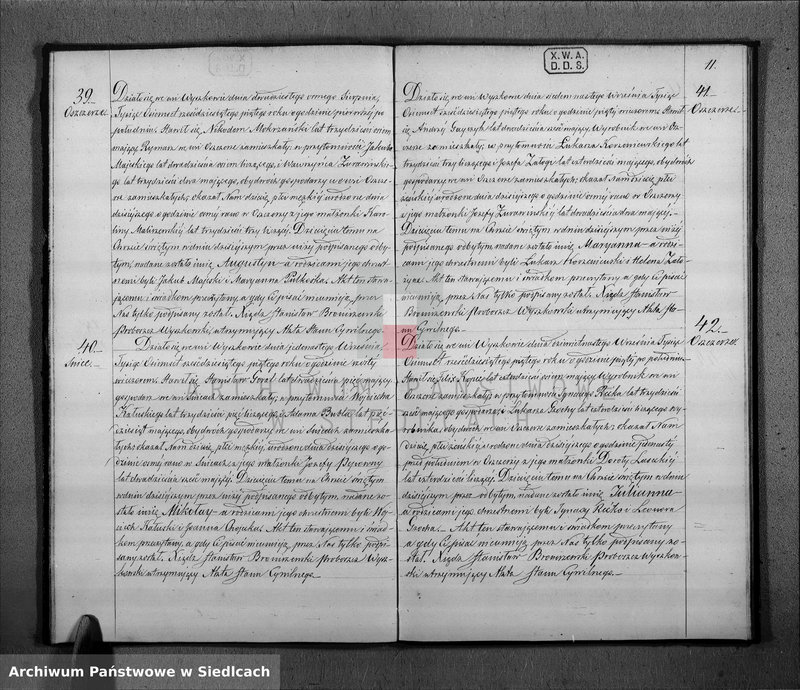 X.W.A.
D.D.S.
11.
39.
Oszczerze.
Działo się we wsi Wyszkowie dnia dwudziestego ósmego Sierpnia,
Tysiąc Ośmset sześćdziesiątego piątego roku o godzinie pierwszej po
południu. Stawił się Nikodem Mokrzański lat trzydzieści ośm
mający, we wsi Oszczerze zamieszkały, w przytomności Jakuba
Majckiego lat dwadzieścia ośm liczącego, i Wawrzyńca
lat trzydzieści dwa mającego, obydwóch gospodarzy w wsi Oszcze-
rze zamieszkałych; okazał Nam dziecię, płci męzkiej urodzone dnia
dzisiejszego o godzinie ósmej rano w Oszczerzy z jego małżonki Karo-
liny lat trzydzieści trzy liczącej. Dziecięciu temu na
Chrzcie świętym w dniu dzisiejszym przez niżej podpisanego odby-
tym, nadane zostało imię Augustyn a rodzicami jego chrzest-
nemi byli Jakub Majcki i Maryanna. Akt ten stawa-
jącemu i świadkom przeczytany, a gdy ci pisać nieumieją, przez
Nas tylko podpisany został. Xiądz Stanisław Broniszewski
Proboszcz Wyszkowski, utrzymujący Akta Stanu Cywilnego.
40.
Śnice.
Działo się we wsi Wyszkowie dnia jedenastego Września,
Tysiąc Ośmset sześćdziesiątego piątego roku o godzinie szóstej
wieczorem. Stawił się Stanisław lat dwadzieścia pięć mający
gospodarz we wsi Śnicach zamieszkały, w przytomności Wojciecha
Kałuskiego lat trzydzieści pięć liczącego, i Adama Bąbla lat pięć-
dziesiąt mającego, obydwóch gospodarzy we wsi Śnicach zamieszka-
łych; okazał Nam dziecię płci męzkiej, urodzone dnia dzisiejszego o go-
dzinie ósmej rano w Śnicach z jego małżonki Józefy
lat dwadzieścia sześć mającej. Dziecięciu temu na Chrzcie świętym
w dniu dzisiejszym przez niżej podpisanego odbytym, nadane zo-
stało imię Mikołaj a rodzicami jego chrzestnemi byli Woj-
ciech Kałuski i Joanna. Akt ten stawającemu i świad-
kom przeczytany, a gdy ci pisać nieumieją przez Nas tylko podpi-
sany został. Xiądz Stanisław Broniszewski Proboszcz Wysz-
kowski utrzymujący Akta Stanu Cywilnego.
41.
Oszczerze.
Działo się we wsi Wyszkowie dnia siedemnastego Września Tysiąc
Ośmset sześćdziesiątego piątego roku o godzinie piątej wieczorem. Stawił
się Andrzej lat dwadzieścia sześć mający Wyrobnik we wsi Osz-
czerze zamieszkały, w przytomności Łukasza Korzeniewskiego lat
trzydzieści trzy liczącego i Józefa Załogi lat czterdzieści mającego, obydwóch
gospodarzy we wsi Oszczerze zamieszkałych; okazał Nam dziecię, płci
żeńskiej urodzone dnia dzisiejszego o godzinie ósmej rano w Oszczerzy
z jego małżonki Józefy lat dwadzieścia dwa mającej.
Dziecięciu temu na Chrzcie świętym w dniu dzisiejszym przez niżej
podpisanego odbytym nadane zostało imię Maryanna a rodzi-
cami jego chrzestnemi byli Łukasz Korzeniewski i Helena Zało-
żyna. Akt ten stawającemu i świadkom przeczytany a gdy ci pisać
nieumieją, przez Nas tylko podpisany został. Xiądz Stanisław
Broniszewski Proboszcz Wyszkowski utrzymujący Akta Sta-
nu Cywilnego.
42.
Oszczerze.
Działo się we wsi Wyszkowie dnia ośmnastego Września Tysiąc
Ośmset sześćdziesiątego piątego roku o godzinie piątej po południu.
Stawił się Felix lat czterdzieści ośm mający Wyrobnik we wsi
Oszczerze zamieszkały, w przytomności Ignacego Rećka lat trzydzieści
sześć mającego gospodarza, i Łukasza Grochy lat czterdzieści liczącego wy-
robnika, obydwóch we wsi Oszczerze zamieszkałych; okazał Nam
dziecię płci żeńskiej, urodzone dnia dzisiejszego o godzinie jedenastej
przed południem w Oszczerzy z jego małżonki Doroty
lat czterdzieści liczącej. Dziecięciu temu na Chrzcie świętym w dniu
dzisiejszym przez odbytym, nadane zostało imię Julianna
a rodzicami jego chrzestnemi byli Ignacy Rećka i Leonora
Grocha. Akt ten stawającemu i świadkom przeczytany
a gdy ci pisać nieumieją, przez Nas tylko podpisany zo-
stał. Xiądz Stanisław Broniszewski Proboszcz Wyszkow-
ski utrzymujący Akta Stanu Cywilnego.
Archiwum Państwowe w Siedlcach